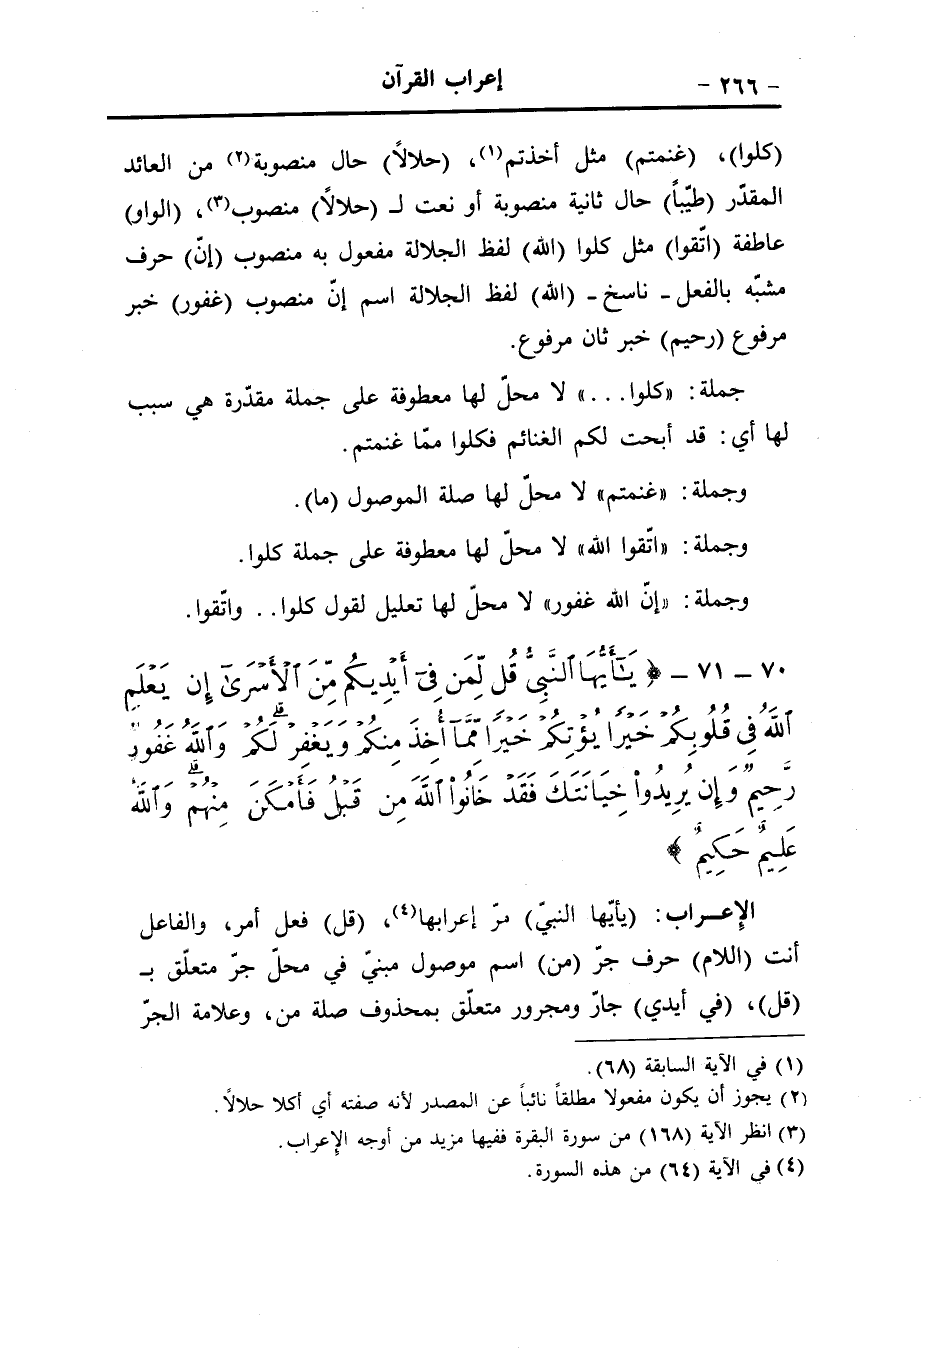 - ٢٦٦ - إعراب القرآن
(كلوا)، (غنمتم) مثل أخذتم(١)، (حلالاً) حال منصوبة(٢) من العائد
المقدّر (طيّباً) حال ثانية منصوبة أو نعت لـ (حلالاً) منصوب(٣)، (الواو)
عاطفة (اتّقوا) مثل كلوا (الله) لفظ الجلالة مفعول به منصوب (إنّ) حرف
مشبّه بالفعل ـ ناسخ ـ (الله) لفظ الجلالة اسم إنّ منصوب (غفور) خبر
مرفوع (رحيم) خبر ثان مرفوع.
جملة: «كلوا...» لا محلّ لها معطوفة على جملة مقدّرة هي سبب
لها أي: قد أبحت لكم الغنائم فكلوا ممّا غنمتم.
وجملة: «غنمتم» لا محلّ لها صلة الموصول (ما).
وجملة: «اتّقوا الله» لا محلّ لها معطوفة على جملة كلوا.
وجملة: «إنّ الله غفور» لا محلّ لها تعليل لقول كلوا.. واتّقوا.
٧٠ ـ ٧١ ـ ﴿ يَـٰٓأَيُّهَا ٱلنَّبِىُّ قُل لِّمَن فِىٓ أَيْدِيكُم مِّنَ ٱلْأَسْرَىٰٓ إِن يَعْلَمِ
ٱللَّهُ فِى قُلُوبِكُمْ خَيْرًا يُؤْتِكُمْ خَيْرًا مِّمَّآ أُخِذَ مِنكُمْ وَيَغْفِرْ لَكُمْ ۗ وَٱللَّهُ غَفُورٌ
رَّحِيمٌ وَإِن يُرِيدُوا۟ خِيَانَتَكَ فَقَدْ خَانُوا۟ ٱللَّهَ مِن قَبْلُ فَأَمْكَنَ مِنْهُمْ ۗ وَٱللَّهُ
عَلِيمٌ حَكِيمٌ ﴾
الإعـراب: (يأيّها النبيّ) مرّ إعرابها(٤)، (قل) فعل أمر، والفاعل
أنت (اللام) حرف جرّ (من) اسم موصول مبنيّ في محلّ جرّ متعلّق بـ
(قل)، (في أيدي) جارّ ومجرور متعلّق بمحذوف صلة من، وعلامة الجرّ
(١) في الآية السابقة (٦٨).
(٢) يجوز أن يكون مفعولا مطلقاً نائباً عن المصدر لأنه صفته أي أكلا حلالاً.
(٣) انظر الآية (١٦٨) من سورة البقرة ففيها مزيد من أوجه الإعراب.
(٤) في الآية (٦٤) من هذه السورة.